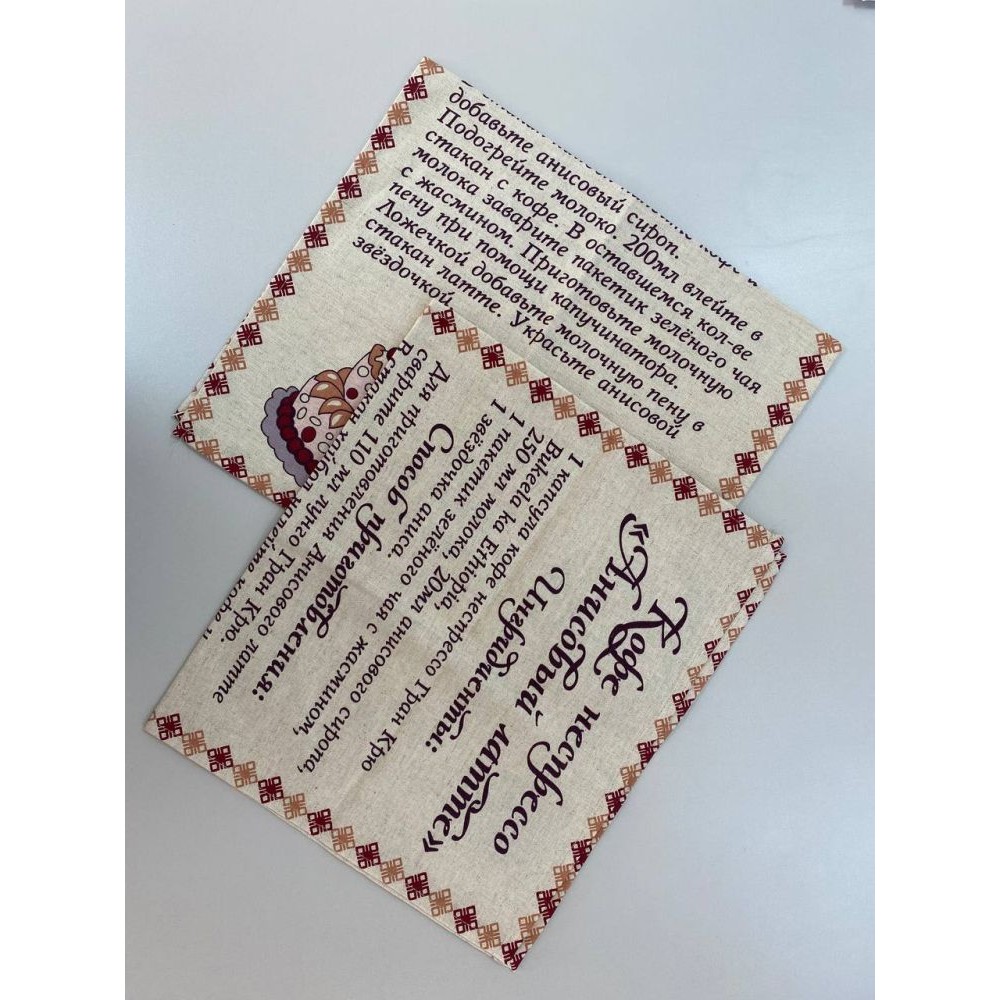 Кофе неспрессо
«Анисовый латте»
Ингридиенты:
1 капсула кофе неспрессо Гран Крю
Bukeela ka Ethiopia,
250 мл молока, 20мл анисового сиропа,
1 пакетик зелёного чая с жасмином,
1 звёздочка аниса.
Способ приготовления:
Для приготовления Анисового латте
сварите 110 мл лунго Гран Крю.
добавьте анисовый сироп.
Подогрейте молоко. 200мл влейте в
стакан с кофе. В оставшемся кол-ве
молока заварите пакетик зелёного чая
с жасмином. Приготовьте молочную
пену при помощи капучинатора.
Ложечкой добавьте молочную пену в
стакан латте. Украсьте анисовой
звёздочкой